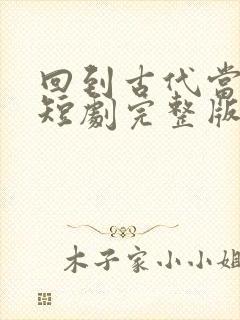 回到古代當
短劇完整版
木子家小小姐